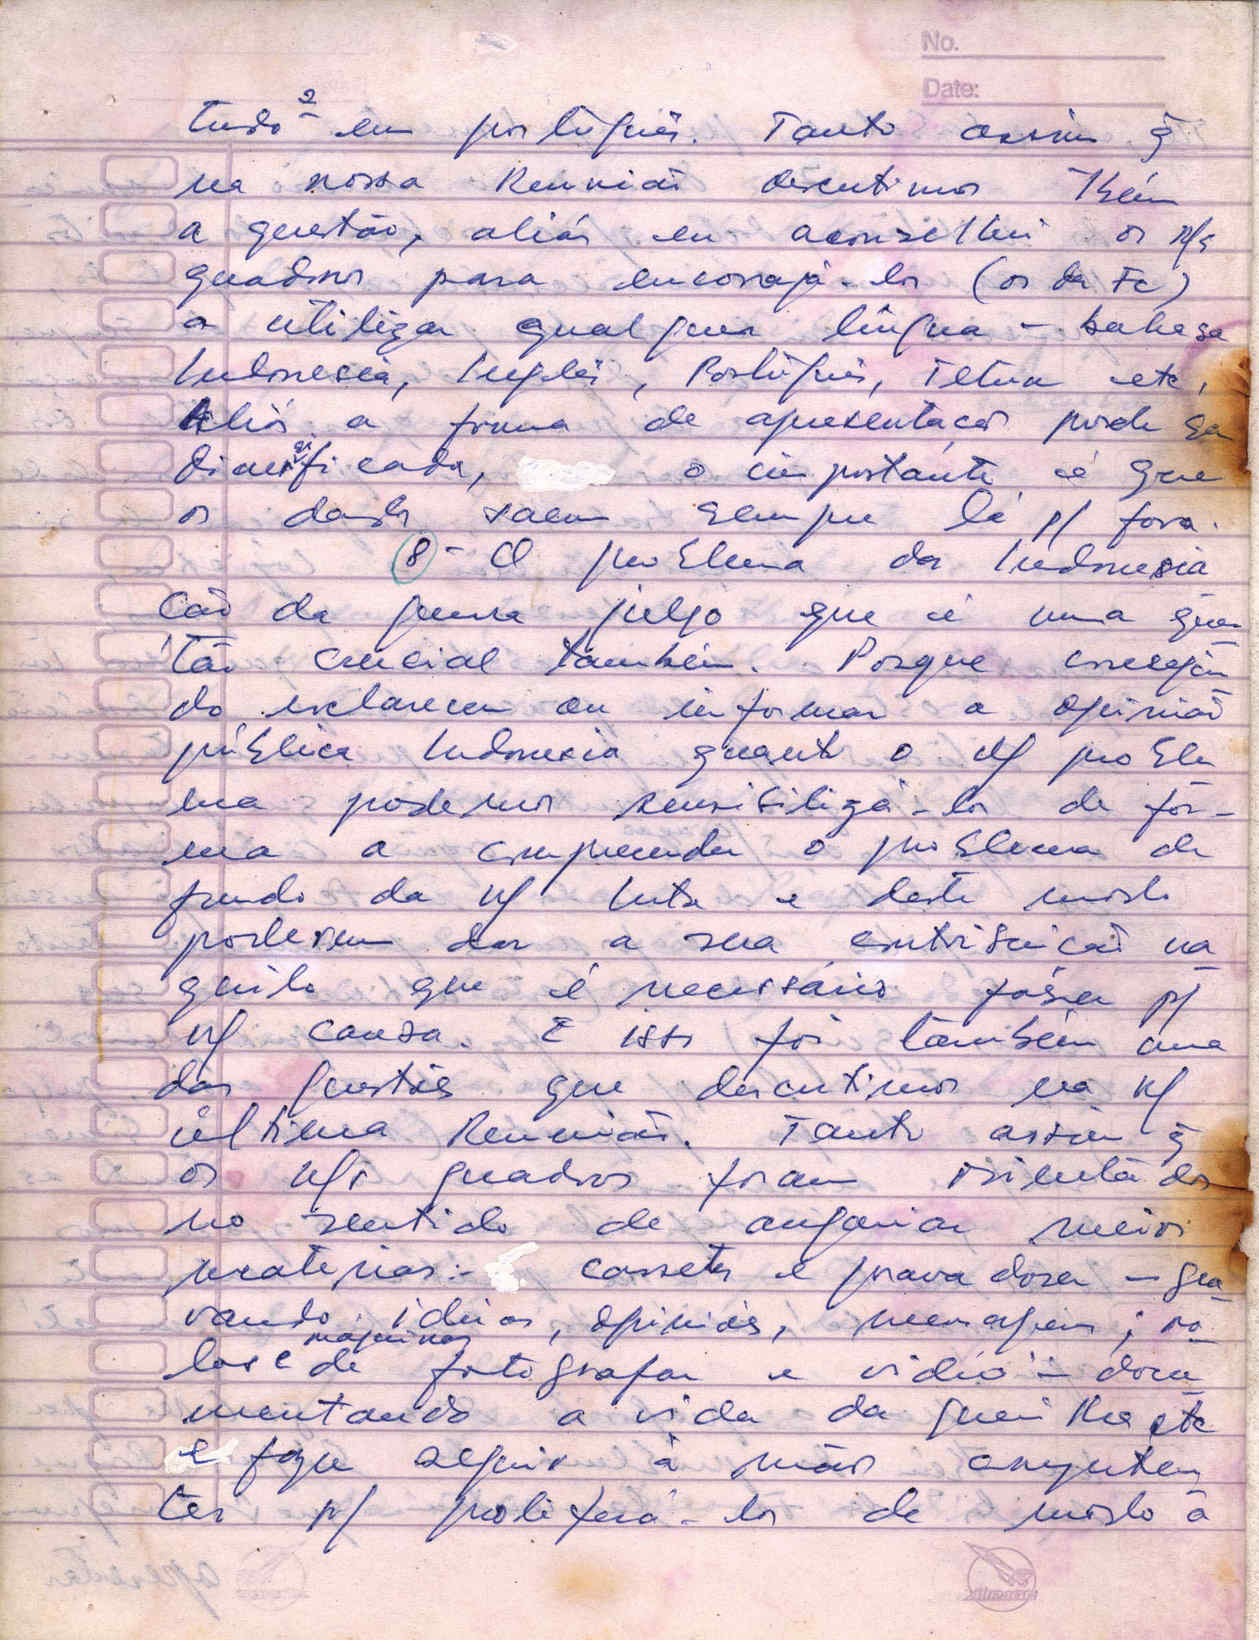 No.
Date:
2
tudo em português. Tanto assim q̃
na nossa Reunião discutimos tbém
a questão, aliás eu aconselhei os n/s
quadros para encorajá-los (os da Fc)
a utilizar qualquer língua - bahasa
Indonesia, Inglês, Português, Tetun etc.
Aliás a forma de apresentação pode ser
diversificada, o importante é que
os dados saem sempre lá p/ fora.
8- O problema da Indonesia
ção da guerra julgo que é uma ques
tão crucial também. Porque conseguin
do esclarecer ou informar a opinião
pública Indonesia quanto o n/ proble
ma podemos sensibilizá-los de for-
ma a compreender o problema de
fundo da n/ luta e deste modo
poderem dar a sua contribuição na
quilo que é necessário fazer p/
n/ causa. E isso foi também uma
das questões que discutimos na n/
última Reunião. Tanto assim q̃
os n/s quadros foram orientados
no sentido de angariar meios
materias:- cassetes e gravadores - gra-
vando ideias, opiniões, mensagens; ro-
los e máquinas de fotografar e vídeo - docu
mentando a vida da guerilha etc
e fazer seguir à mãos competen
tes p/ proliferá-los de modo à